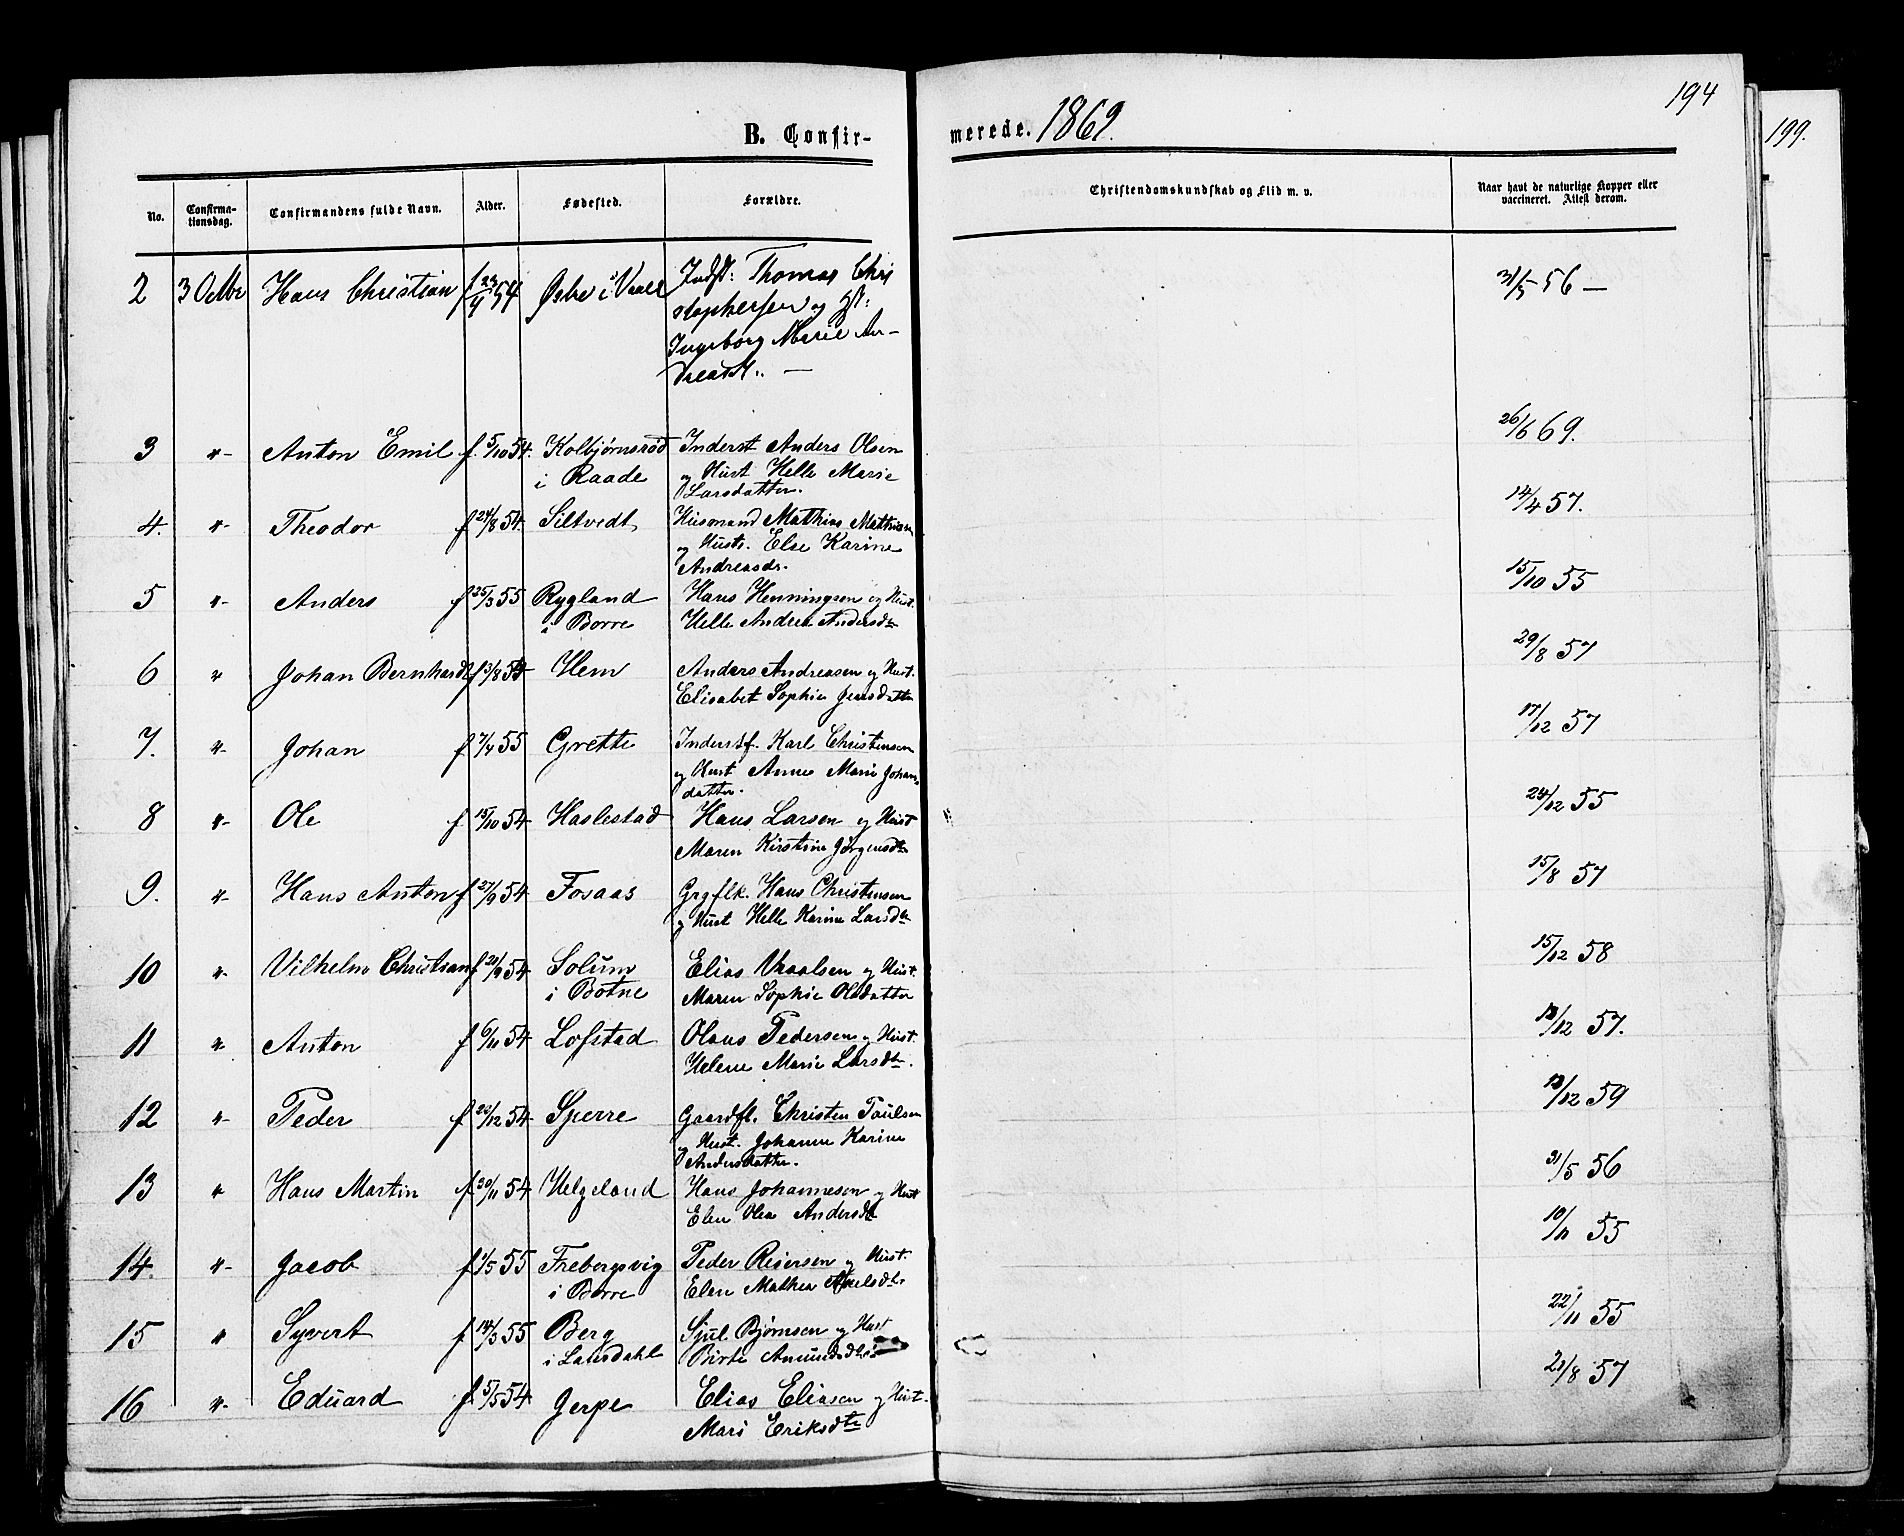 194
199.
B. Confir-
merede. 1869.
No. Confirma-tionsdag. Confirmandens fulde Navn. Alder. Fødested. Forældre. Christendomskundskab og Flid m. v. Naar havt de naturlige Kopper eller vaccineret. Attest derom.
2 3 Octbr Hans Christian f 23/4 54 Østre i Vaale Indst: Thomas Chri 31/5 56 —
stophersen og Hst:
Ingeborg Marie An-
dreasd. —
3 "- Anton Emil f. 5/10 54. Kolbjørnsrød Inderst Anders Olsen 26/6 69.
i Raade og Hust Helle Marie
Larsdatter.
4. "- Theodor f 24/8 54. Siltvedt Husmand Mathias Mathisen 14/4 57.
og Hustr. Else Karine
Andreasdr.
5 "- Anders f 25/3 55 Rygland Hans Henningsen og Hust. 15/10 55
i Borre Helle Andrea Andersdtr
6 " Johan Bernhardt f 13/8 54 Hem Anders Andreasen og Hust. 29/8 57
Elisabet Sophie Jensdatter
7. "- Johan f 7/4 55 Grette Inderst. Karl Christensen 17/12 57
og Hust Anne Marie Johans
datter.
8 "- Ole f. 15/10 54 Haslestad Hans Larsen og Hust 24/12 55
Maren Kirstine Jørgensdtr
9. "- Hans Anton f 27/9 54 Fosaas Grgflk. Hans Christensen 15/8 57
og Hust Helle Karine Larsdtr
10 "- Vilhelm Christian f 21/9 54 Solum Elias Vraalsen og Hust. 15/12 58
i Botne Maren Sophie Olsdatter
11 " Anton f 6/11 54 Lofstad Olaus Pedersen og Hust. 13/12 57.
Helene Marie Larsdtr.
12 "- Peder f 22/12 54 Sperre Gaardfl. Christen Paulsen 13/12 59
og Hust. Johanne Karine
Andersdatter.
13 " Hans Martin f 30/11 54 Helgeland Hans Johannesen og Hust 31/5 56
Elen Olea Andersdt
14. "- Jacob f 1/5 55 Frebergsvig Peder Reiersen og Hust. 10/11 55
i Borre Elen Mathea Axelsdtr
15 " Syvert f 14/3 55 Berg Sjul Bjørnsen og Hust 22/11 55
i Laurdahl Birte Amundsdtr
16 "- Eduard f 5/5 54 Gjerpe Elias Eliasen og Hust. 21/8 57
Mari Eriksdtr